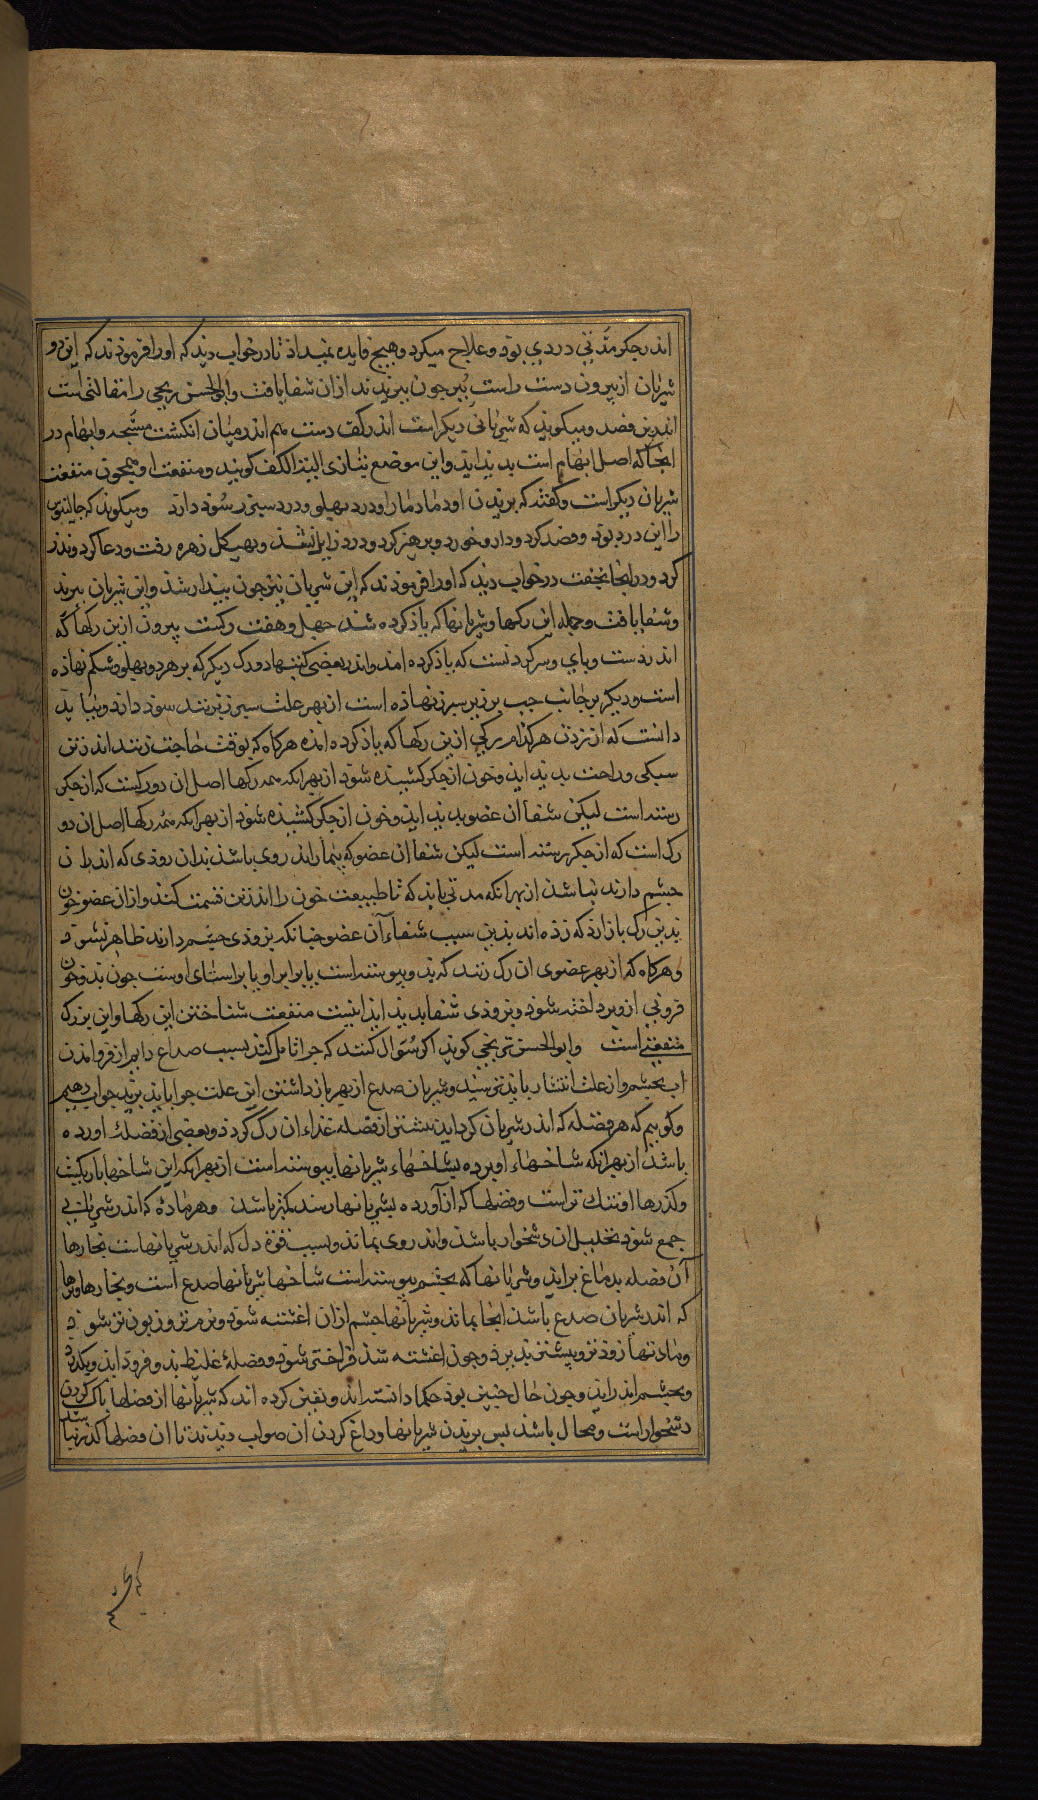 اندر جکر مدتی دردی بود و علاج میکرد و هیچ فایده نمیداد تا در خواب دید که اورا فرمودند که این دو
شریان از بیرون دست راست ببر چون ببریدند ازان شفا یافت و ابوالحسن تربخی را مقالتی است
اندرین فصد و میکوید که شریانی دیکر است اندر کف دست هم اندر میان انکشت مسبحه و ابهام در
انجا که اصل ابهام است بدید اید و این موضع بتازی الیتة الکف کویند و منفعت او همچون منفعت
شریان دیکر است و کفتند که بریدن او دمادمارا و درد بهلو و درد سبرز سود دارد و میکویند که جالینوس
را این درد بود و فصد کرد و دارو خورد و پرهیز کرد و درد زایل نشد و بهیکل زهره رفت و دعا کرد و نذر
کرد و در انجا بخفت در خواب دید که اورا فرمودند که این شریان بزن چون بیدار شد و این شریان ببرید
و شفا یافت و جمله این رکها و شریانها که یاذ کرده شد چهل و هفت رکست بیرون ازین رکها که
اندر دست و پای و سر کردنست که یاذ کرده امد و اندر بعضی کتبها دو رک دیکر که بر هر دو بهلو و شکم نهاذه
است و دیکر بر جانب چب بر زیر سبرز نهاذه است از بهر علت سبرز زنند سود دارد و بباید
دانست که از زدن هر کدام رکی ازین رکها که یاذ کرده امد هرکاه که بوقت حاجت زنند اندر تن
سبکی و راحت بدید اید و خون از جکر کشیده شود از بهر انکه همه رکها اصل ان دو رکیست که از جکر
رسته است لیکن شفا ان عضو بدید اید و خون از جکر کشیده شود از بهر انکه همه رکها اصل ان دو
رک است که از جکر رسته است لیکن شفا ان عضو که بیمار اندر وی باشذ بدان زودی که اندران
چشم دارند نباشد از بهر انکه مدتی باید که تا طبیعت خون را اندر تن قسمت کند و از ان عضو خون
بدین رک باز ارد که زذه اند بدین سبب شفاء آن عضو چنانکه بزودی چشم دارند ظاهر نشود
و هرکاه که از بهر عضوی ان رک زنند که بدو پیوسته است یا برابر او یا براستای اوست چون بدو خون
فزونی ازو برداخته شود و بزودی شفا بدید اید اینست منفعت شناختن این رکها و این بزرک
منفعتی است و ابوالحسن تربخی کوید اکر سوال کنند که چرا تامل کنند بسبب صداع دایم از فرو امدن
اب بچشم و از علت انتشار باید ترسید و شریان صدغ از بهر بازداشتن این علت چرا باید برید جواب دهیم
و کوییم که هر فضله که اندر شریان کرد اید بیشتر از فضله غذاء ان رک کرد و بعضی از فضلها اورده
باشذ از بهر انکه شاخهاء اورده بشاخهاء شریانها پیوسته است از بهر انکه این شاخها باریکست
و کذرها او تنک تر است و فضلها که از آورده بشریانها رسد کمتر باشد و هر ماده که اندر شریانی
جمع شود تحلیل ان دشخوار باشذ و اندر وی بماند و بسبب قوة دل که اندر شریانهاست بخارها
آن فضله بدماغ براید و شریانها که بچشم پیوسته است شاخها شریانها صدغ است و بخارها و ترها
که اندر شریان صدغ باشد انجا بماند و شریانها چشم ازان اغشته شود و نرم تر و زبون تر شود
و مادتها زودتر و بیشتر پذیرد و چون اغشته شد فراختر شود و فضلهٔ غلیظ بدو فرود اید و بکذرد
و بچشم اندر اید و چون حال چنین بود حکما دانسته اند و یقین کرده اند که شریانها از فضلها پاک کردن
دشخوار است و محال باشذ پس بریدن شریانها و داغ کردن ان صواب دیدند تا ان فضلها کذر نیابد